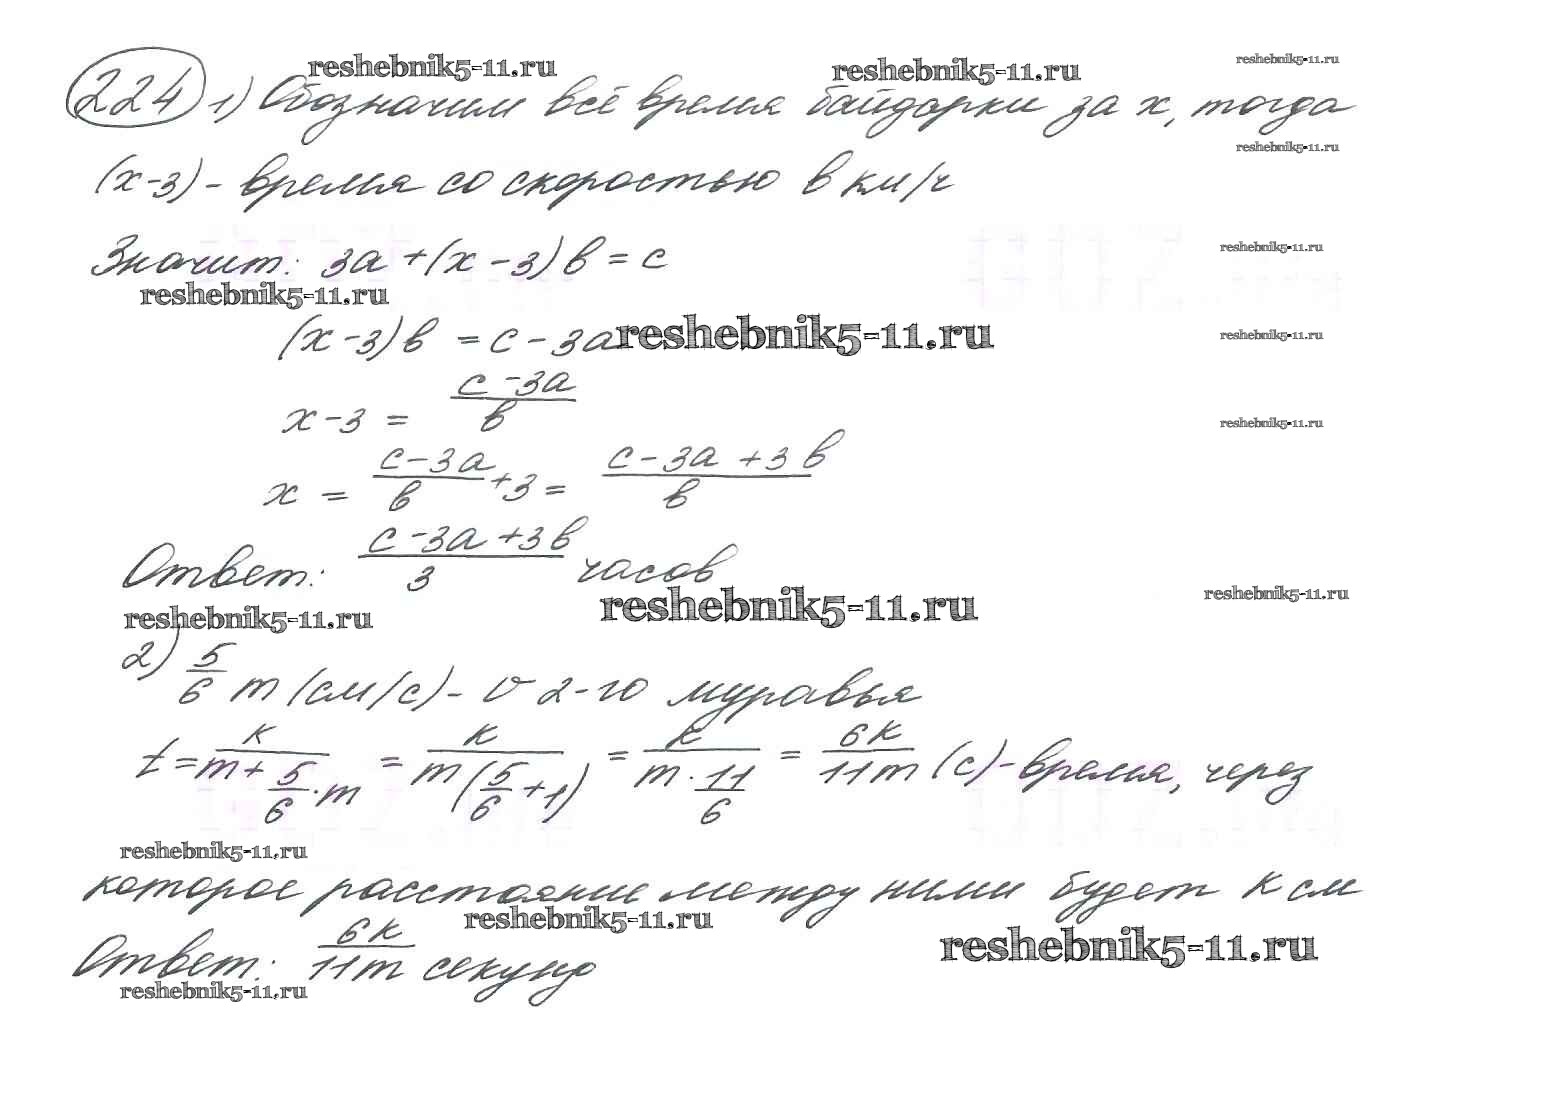 reshebnik5-11.ru reshebnik5-11.ru reshebnik5-11.ru
224 1) Обозначим всё время байдарки за x, тогда
reshebnik5-11.ru
(x-3) - время со скоростью в км/ч
Значит: 3a + (x - 3) в = c
reshebnik5-11.ru
reshebnik5-11.ru
(x - 3) в = c - 3a
reshebnik5-11.ru reshebnik5-11.ru
x - 3 = (c - 3a)/в
reshebnik5-11.ru
x = (c - 3a)/в + 3 = (c - 3a + 3в)/в
Ответ: (c - 3a + 3в)/3 часов
reshebnik5-11.ru reshebnik5-11.ru reshebnik5-11.ru
2) 5/6 m (см/с) - v 2-го муравья
t = k/(m + 5/6 · m) = k/(m(5/6 + 1)) = k/(m · 11/6) = 6k/11m (с) - время, через
reshebnik5-11.ru
которое расстояние между ними будет k см
reshebnik5-11.ru reshebnik5-11.ru
Ответ: 6k/11m секунд
reshebnik5-11.ru